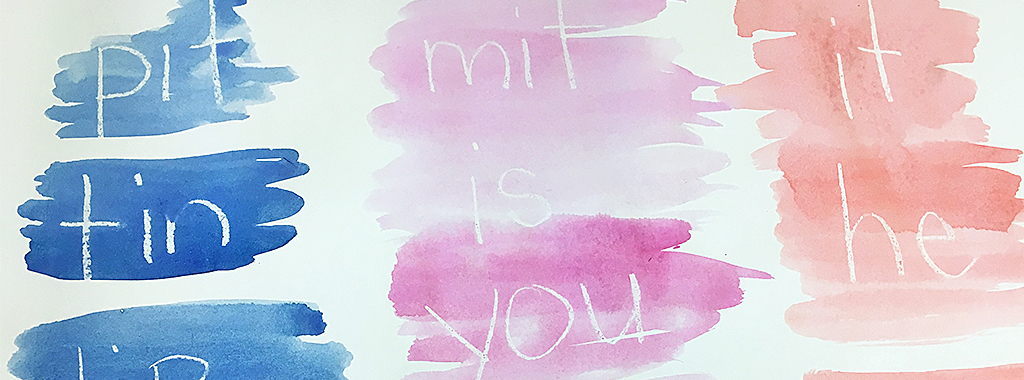 pit
tin
mit
is
you
it
he